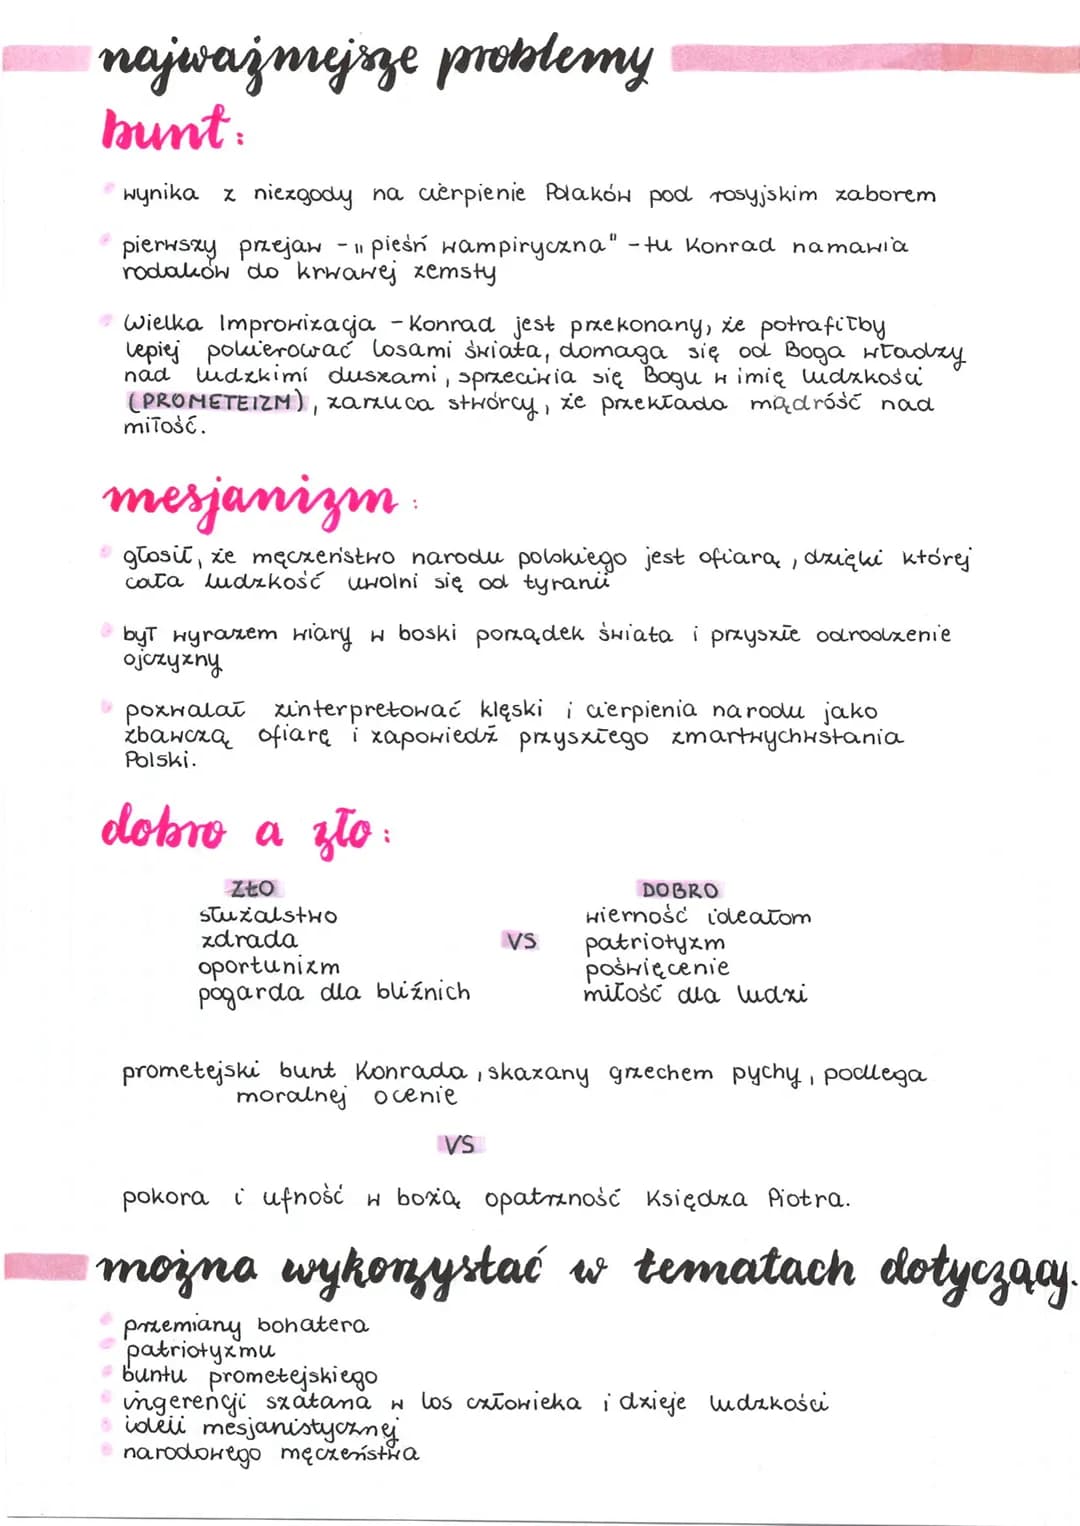 najważniejsze problemy
bunt:
wynika z niezgody na cierpienie Polaków pod rosyjskim zaborem
pierwszy przejaw - „pieśń wampiryczna" - tu Konrad namawia
rodaków do krwawej zemsty
Wielka Improwizacja - Konrad jest przekonany, że potrafiłby
lepiej pokierować losami świata, domaga się od Boga władzy
nad ludzkimi duszami, sprzeciwia się Bogu w imię ludzkości
(PROMETEIZM), zarzuca stwórcy, że przekłada mądrość nad
miłość.
mesjanizm:
głosił, że męczeństwo narodu polskiego jest ofiarą, dzięki której
cała ludzkość uwolni się od tyranii
był wyrazem wiary w boski porządek świata i przyszłe odrodzenie
ojczyzny
pozwalał zinterpretować klęski i cierpienia narodu jako
zbawczą ofiarę i zapowiedź przyszłego zmartwychwstania
Polski.
dobro a zło:
ZŁO
służalstwo
zdrada
oportunizm
pogarda dla bliźnich
VS
DOBRO
wierność ideałom
patriotyzm
poświęcenie
miłość dla ludzi
prometejski bunt Konrada, skazany grzechem pychy, podlega
moralnej ocenie
VS
pokora i ufność w bożą opatrzność Księdza Piotra.
można wykorzystać w tematach dotyczący.
przemiany bohatera
patriotyzmu
buntu prometejskiego
ingerencji szatana w los człowieka i dzieje ludzkości
ideii mesjanistycznej
narodowego męczeństwa